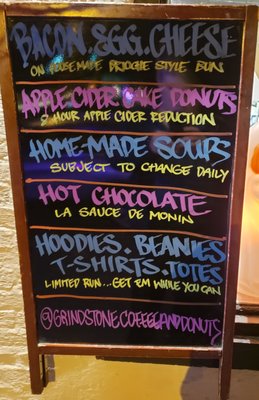 BACON.EGG.CHEESE
ON HOUSE MADE BRIOCHE STYLE BUN
APPLE CIDER CAKE DONUTS
8 HOUR APPLE CIDER REDUCTION
HOME-MADE SOUPS
SUBJECT TO CHANGE DAILY
HOT CHOCOLATE
LA SAUCE DE MONIN
HOODIES.BEANIES
T-SHIRTS.TOTES
LIMITED RUN...GET EM WHILE YOU CAN
@GRINDSTONECOFFEEANDDONUTS